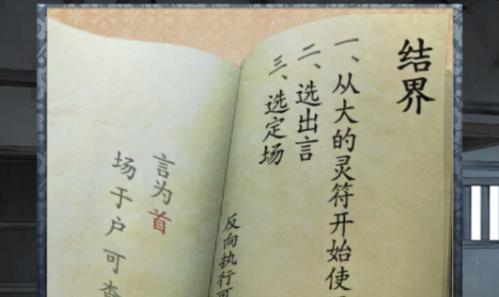 结界
一、从大的灵符开始使
二、选出言
三、选定场
反向执行可
言为首
场于户可查